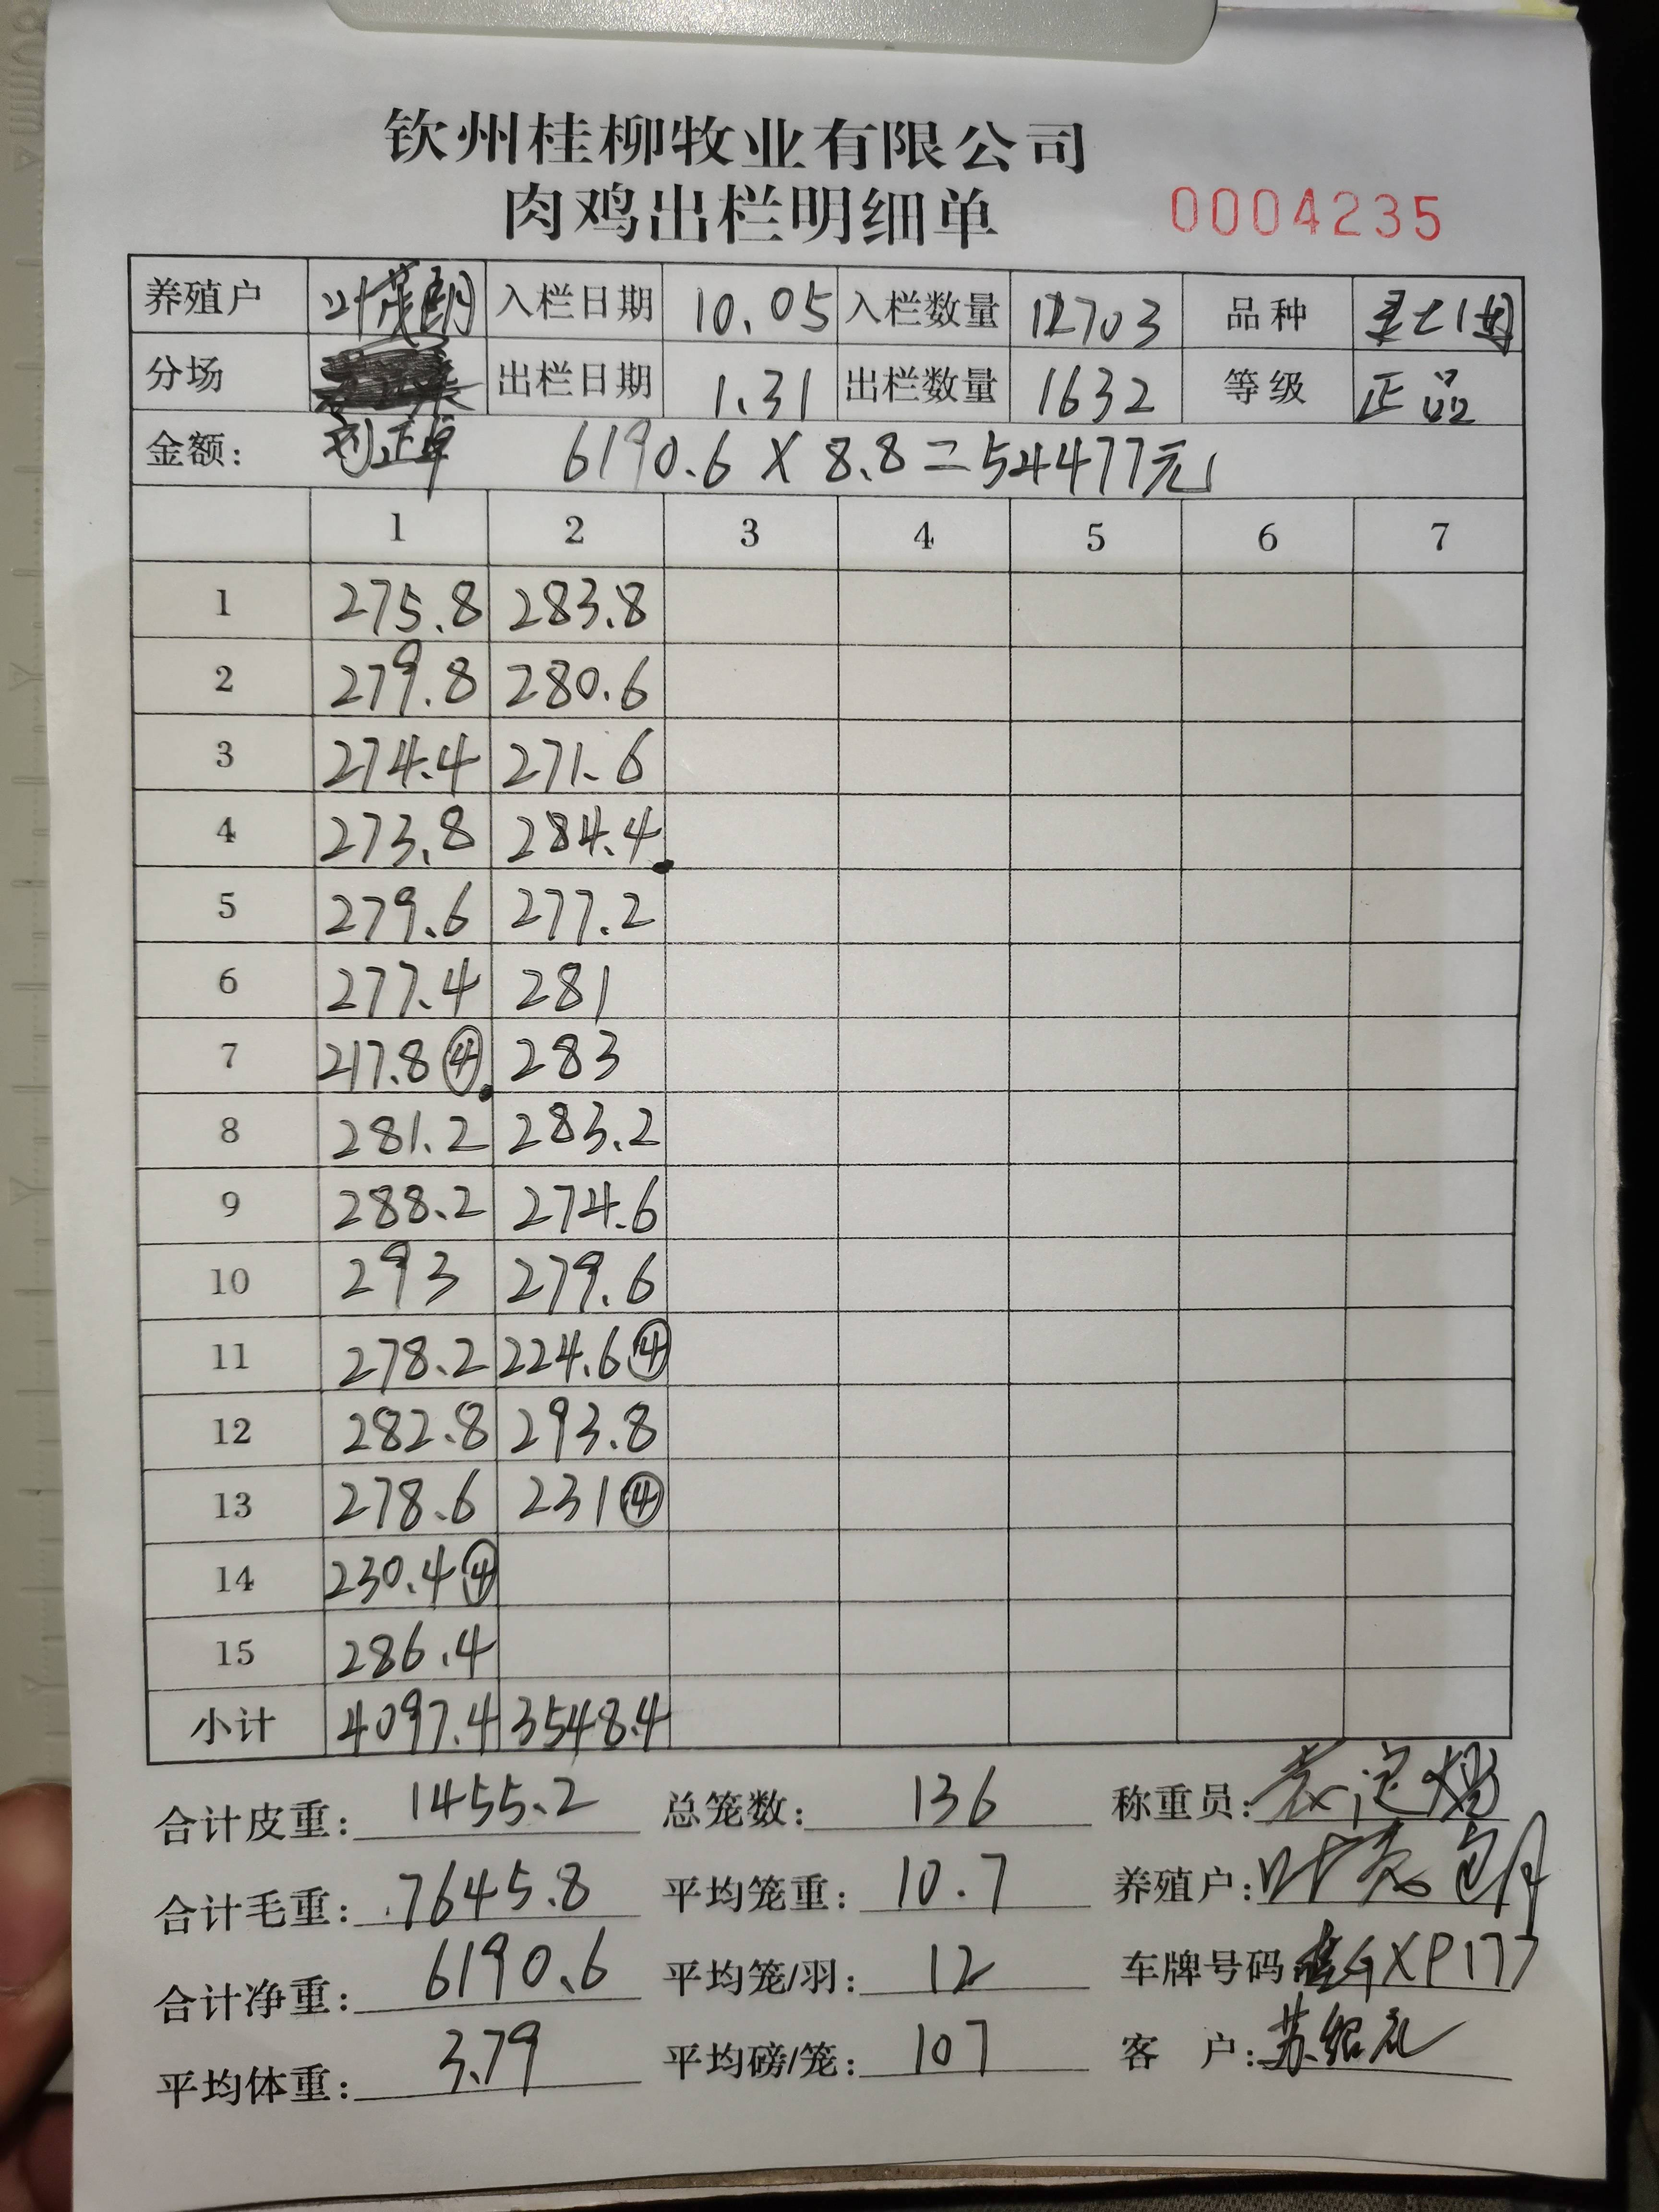 钦州桂柳牧业有限公司
肉鸡出栏明细单 0004235
养殖户 叶茂朗 入栏日期 10.05 入栏数量 12703 品种
分场 出栏日期 1.31 出栏数量 1632 等级 正品
金额: 刘正卓 6190.6 X 8.8 = 54477元
1 2 3 4 5 6 7
1 275.8 283.8
2 279.8 280.6
3 274.4 271.6
4 273.8 284.4
5 279.6 277.2
6 277.4 281
7 217.8 ④ 283
8 281.2 283.2
9 288.2 274.6
10 293 279.6
11 278.2 224.6 ④
12 282.8 293.8
13 278.6 231 ④
14 230.4 ④
15 286.4
小计 4097.4 3548.4
合计皮重: 1455.2 总笼数: 136 称重员:
合计毛重: 7645.8 平均笼重: 10.7 养殖户: 叶茂朗
合计净重: 6190.6 平均笼/羽: 12 车牌号码 XP177
平均体重: 3.79 平均磅/笼: 107 客 户: 苏绍礼